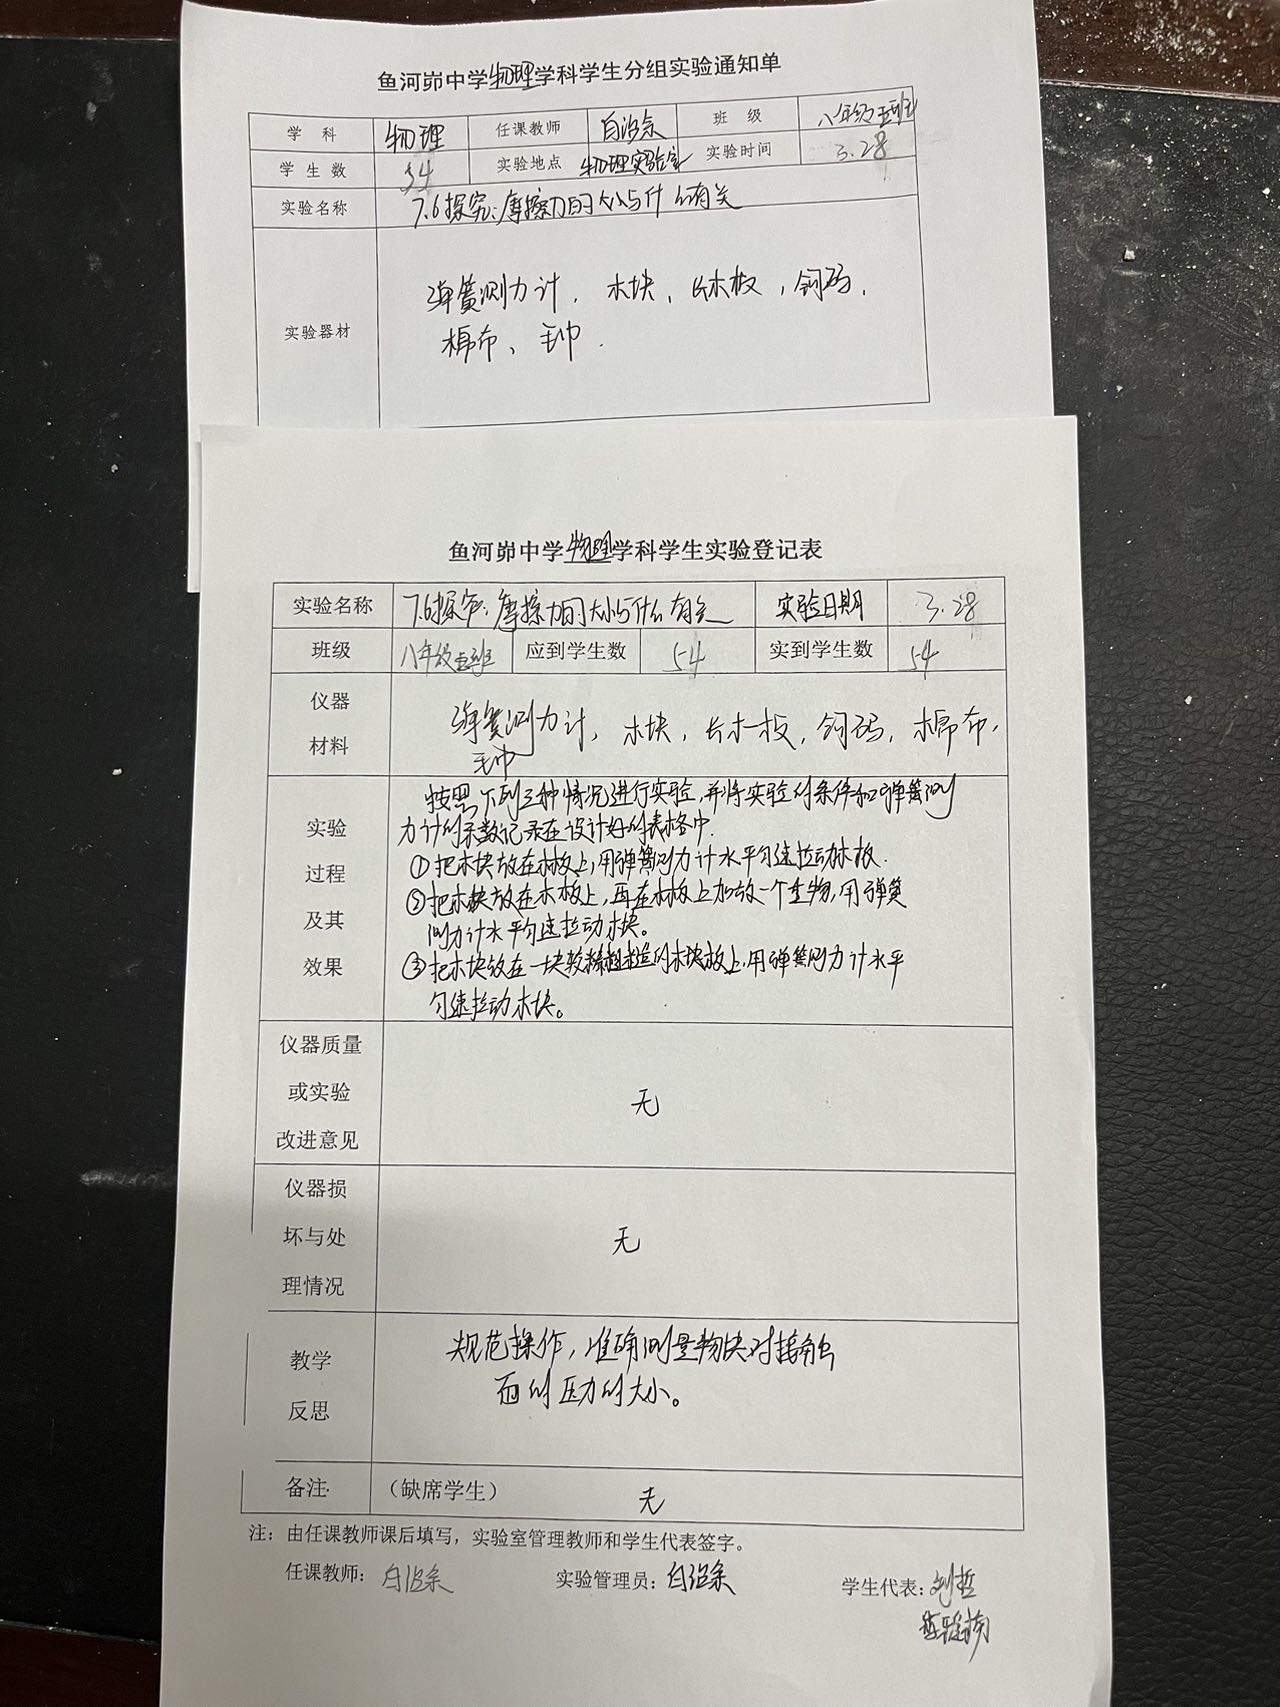 鱼河峁中学物理学科学生分组实验通知单
学 科 物理 任课教师 白治余 班 级 八年级五班
学 生 数 54 实验地点 物理实验室 实验时间 3.28
实验名称 7.6探究:摩擦力的大小与什么有关
实验器材 弹簧测力计, 木块, 长木板, 钩码,
棉布、毛巾.
鱼河峁中学物理学科学生实验登记表
实验名称 7.6探究:摩擦力的大小与什么有关 实验日期 3.28
班级 八年级五班 应到学生数 54 实到学生数 54
仪器 弹簧测力计, 木块, 长木板, 钩码, 棉布,
材料 毛巾
按照下列三种情况进行实验,并将实验的条件和弹簧测
实验 力计的示数记录在设计好的表格中.
①把木块放在木板上,用弹簧测力计水平匀速拉动木板.
过程 ②把木块放在木板上,再在木板上加放一个重物,用弹簧
及其 测力计水平匀速拉动木块。
效果 ③把木块放在一块较粗糙的木块板上,用弹簧测力计水平
匀速拉动木块。
仪器质量
或实验 无
改进意见
仪器损
坏与处 无
理情况
教学 规范操作,准确测量物块对接触
反思 面的压力的大小。
备注 (缺席学生) 无
注:由任课教师课后填写,实验室管理教师和学生代表签字。
任课教师: 白治余 实验管理员: 白治余 学生代表: 刘哲